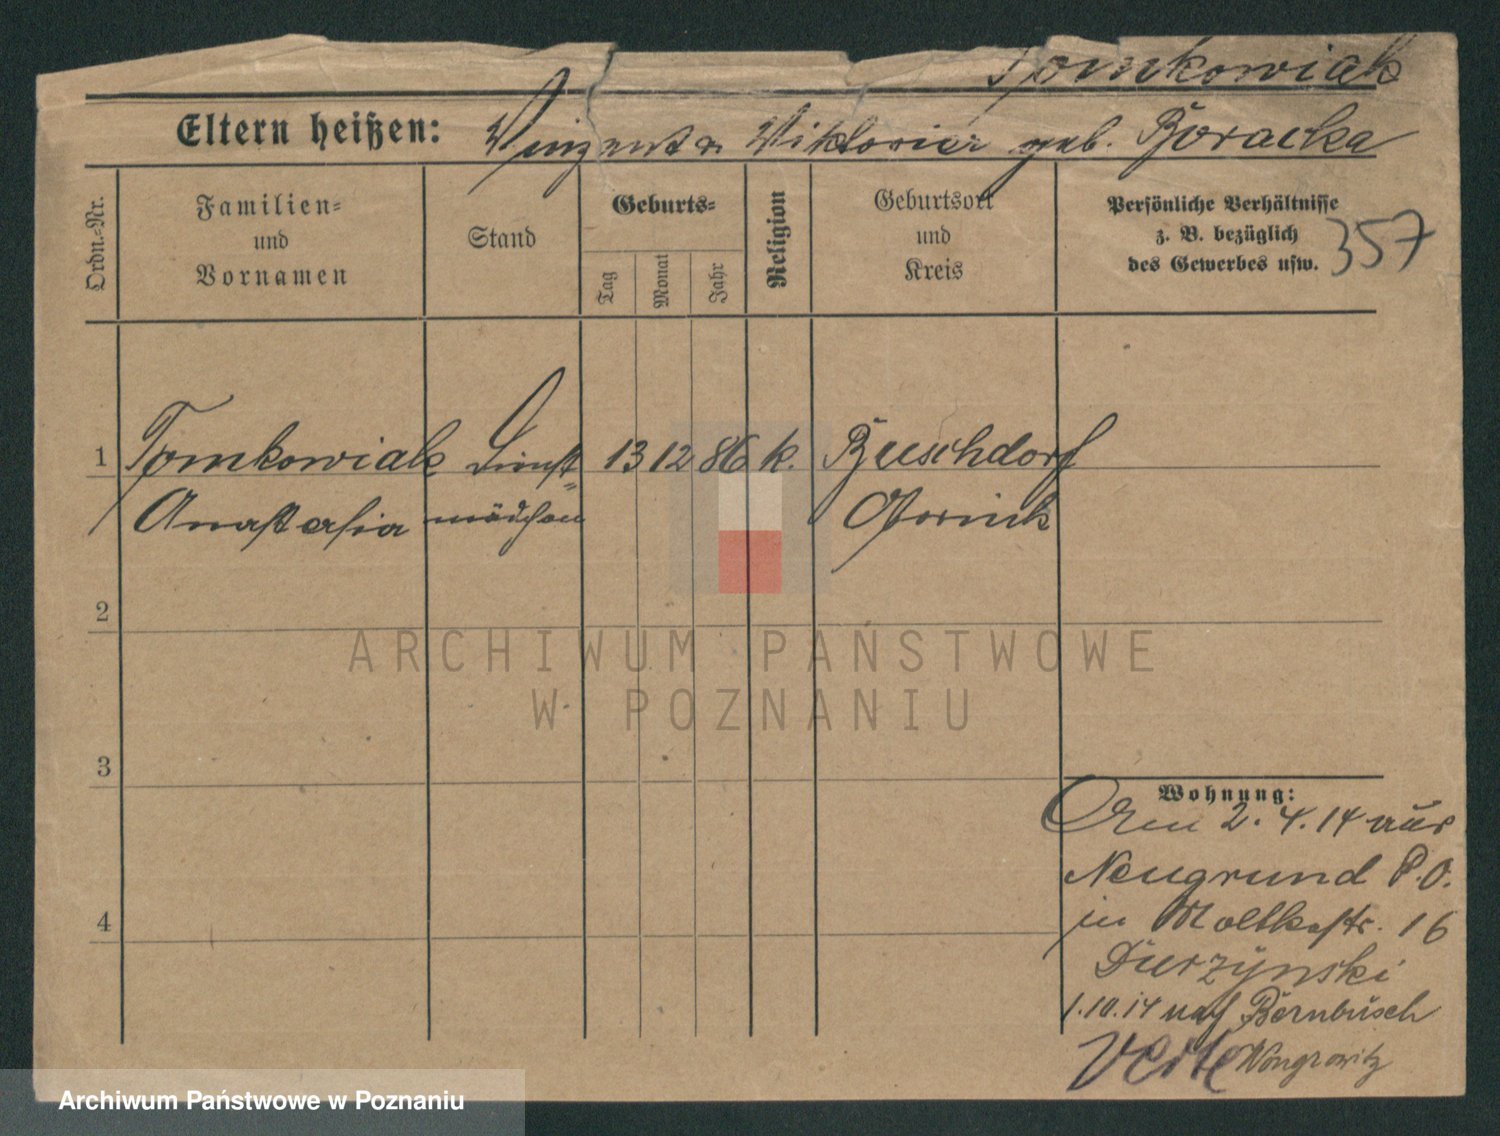 Tomkowiak
Eltern heißen: Vinzent u. Wiktoria geb. Boracka
Ordn.-Nr.
Familien-
und
Vornamen
Stand
Geburts-
Tag
Monat
Jahr
Religion
Geburtsort
und
Kreis
Persönliche Verhältnisse
z. B. bezüglich
des Gewerbes usw.
357
1 Tomkowiak Dienst- 13 12 86 k. Buschdorf
Anastasia mädchen Obornik
2
3
4
ARCHIWUM PAŃSTWOWE
W POZNANIU
Wohnung:
Am 2.4.14 aus
Neugrund P.O.
in Moltkestr. 16
Durzynski
1.10.14 nach Bornbusch
Wongrowitz
Archiwum Państwowe w Poznaniu